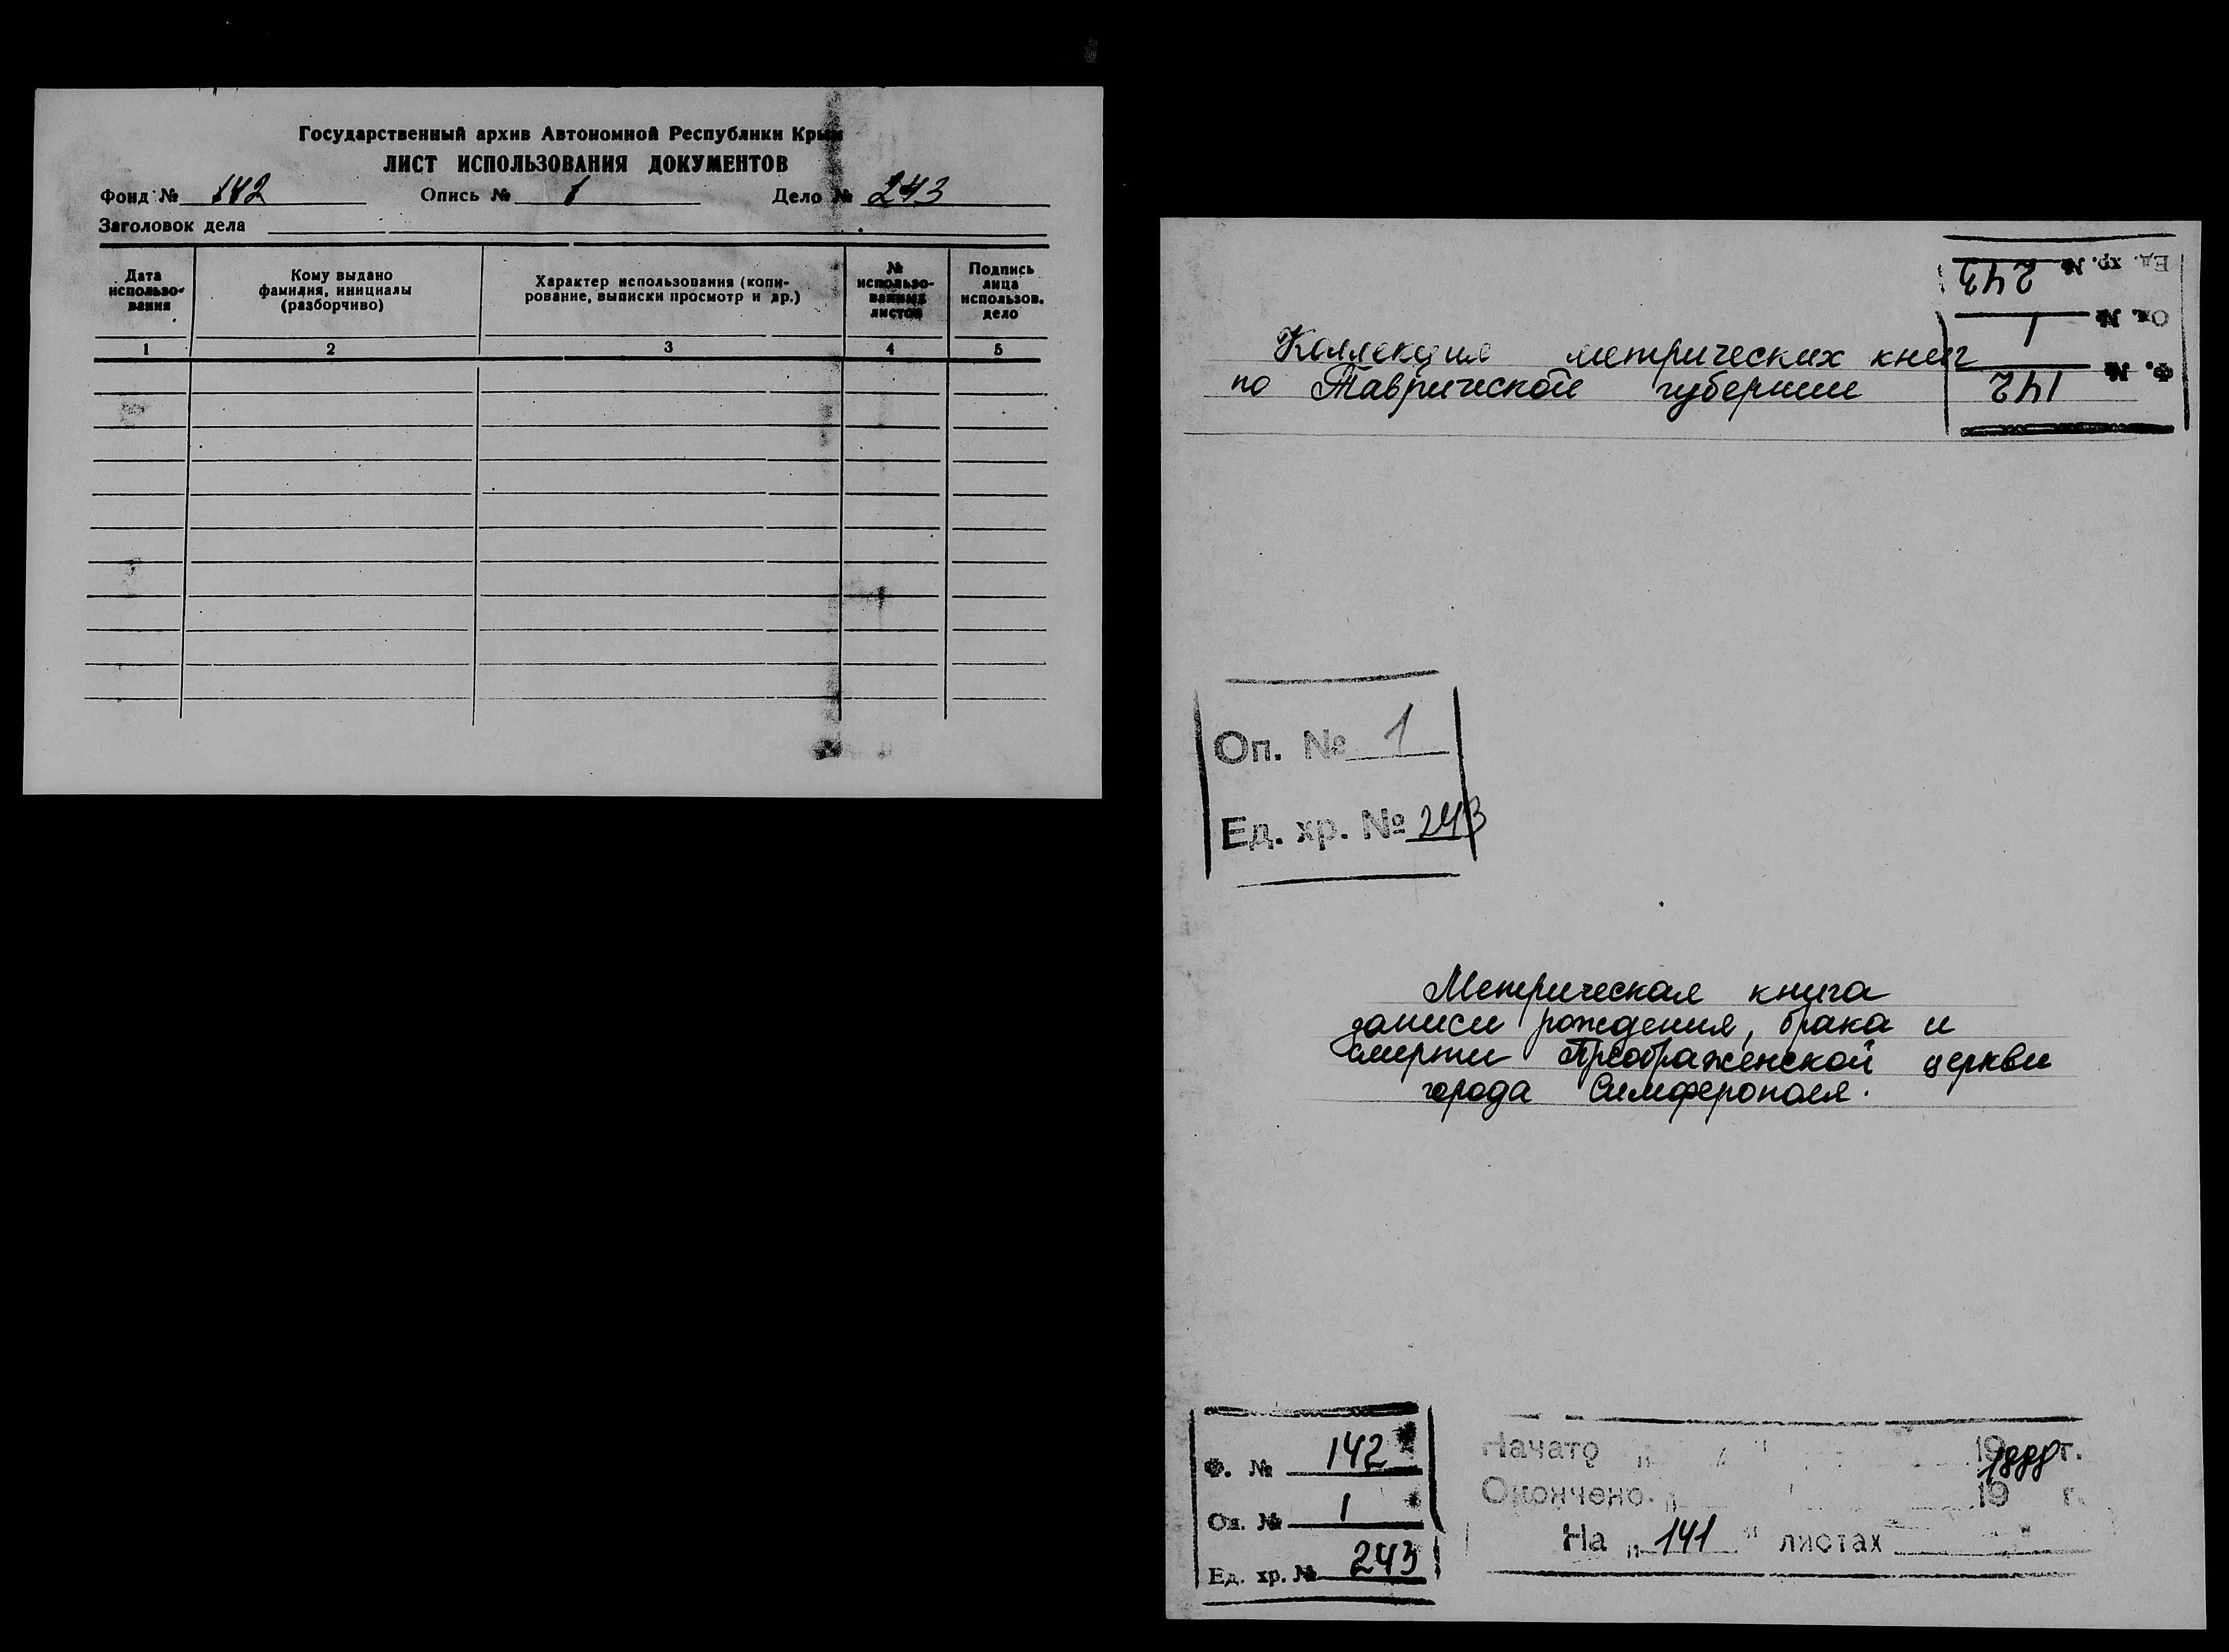 Государственный архив Автономной Республики Крым
ЛИСТ ИСПОЛЬЗОВАНИЯ ДОКУМЕНТОВ
Фонд № 142 Опись № 1 Дело № 243
Заголовок дела
Дата использо-вания
Кому выдано фамилия, инициалы (разборчиво)
Характер использования (копи-рование, выписки просмотр и др.)
№ использо-ванных листов
Подпись лица использов. дело
1 2 3 4 5
Ед. хр. № 243
Оп. № 1
Ф. № 142
Коллекция метрических книг
по Таврической губернии
Оп. № 1
Ед. хр. № 243
Метрическая книга
записи рождения, брака и
смерти Преображенской церкви
города Симферополя.
Ф. № 142
Оп. № 1
Ед. хр. № 243
Начато " " 19 г.
Окончено " " 19 г.
На "141" листах